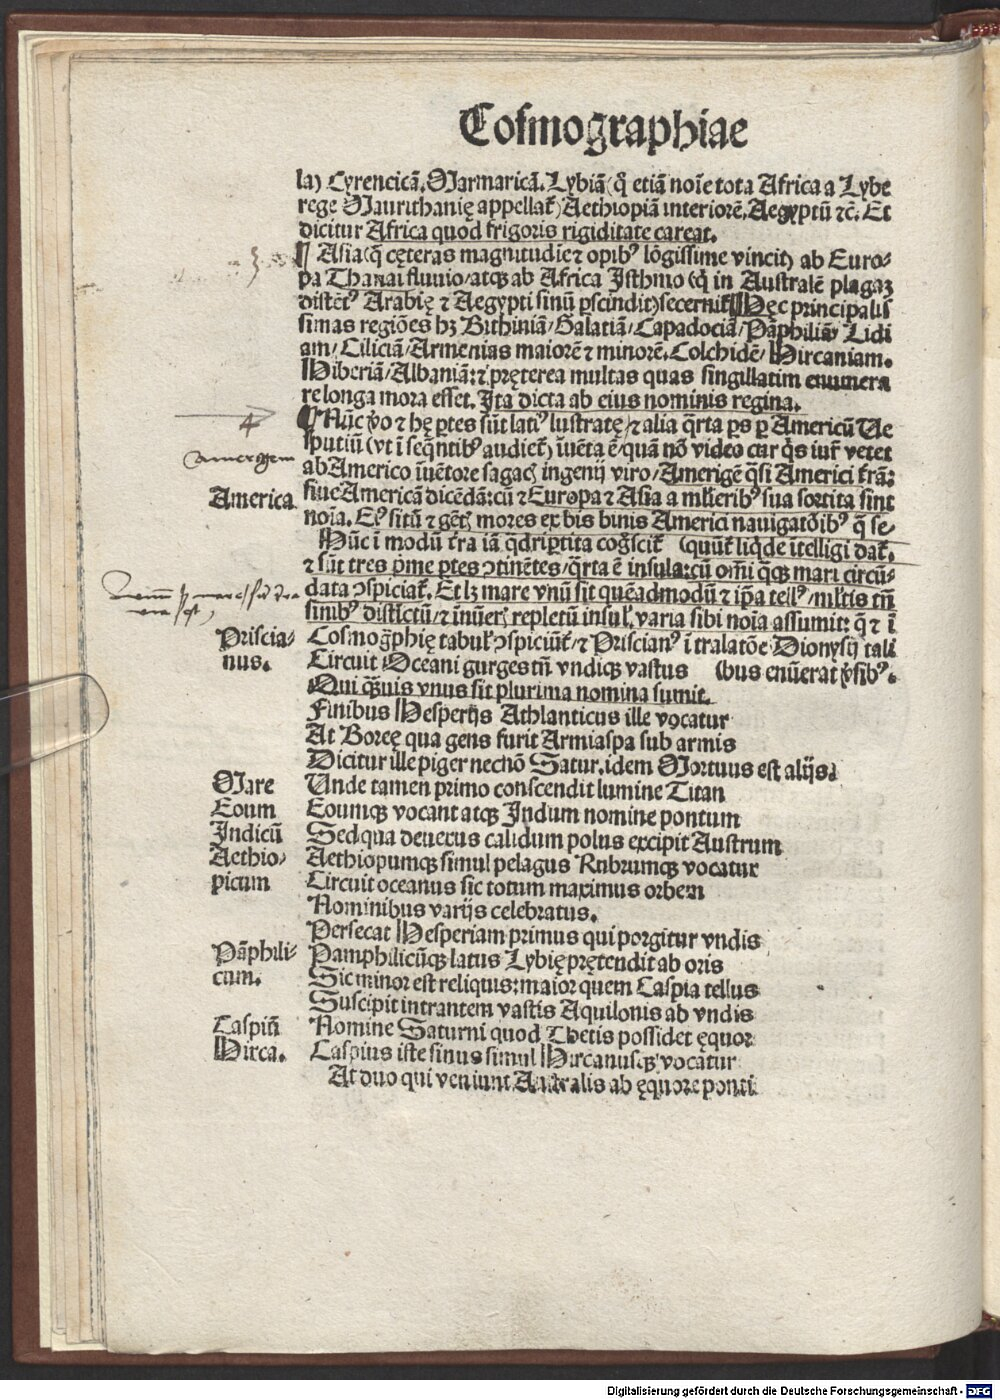 Cosmographiae
la) Cyrencicā. Marmaricā. Lybiā (q̄ etiā noīe tota Africa a Lybe
rege Maurithanię appellat̄) Aethiopiā interiorē. Aegyptū ⁊c̄. Et
dicitur Africa quod frigoris rigiditate careat.
¶ Asia (q̄ cęteras magnitudīe ⁊ opibꝰ lōgissime vincit) ab Euro⸗
pa Thanai fluuio/atqꝫ ab Africa Isthmo (q̄ in Australē plagaꝫ
distētꝰ Arabię ⁊ Aegypti sinū ꝑscindit) secernit̄. Hęc principalis
simas regiōes hꝫ Bithiniā/Galatiā/Capadociā/Pāphiliā/Lidi
am/Ciliciā/Armenias maiorē ⁊ minorē. Colchidē/Hircaniam.
Hiberiā/Albaniā: ⁊ pręterea multas quas singillatim enumera
re longa mora esset. Ita dicta ab eius nominis regina.
¶ Nūc ꝟo ⁊ hę ꝑtes sūt latiꝰ lustratę/⁊ alia q̄rta ꝑs ꝑ Americū Ve
sputiū (vt ī seq̄ntibꝰ audiet̄) īuēta ē/quā nō video cur q̄s iur̄ vetet
ab Americo īuētore sagacꝭ ingenij viro/Amerigē q̄si Americi t̄rā:
4
amerigem
America
siue Americā dicēdā: cū ⁊ Europa ⁊ Asia a ml̄ieribꝰ sua sortita sint
noīa. Eiꝰ sitū ⁊ gētꝭ mores ex bis binis Americi nauigatōibꝰ q̄ se⸗
Nūc ī modū t̄ra iā q̄dripartita coḡscit̄ (quūt̄ liq̄de ītelligi dat̄.
⁊ sūt tres p̄me ꝑtes ↄtinētes/q̄rta ē insula: cū om̄i q̄qꝫ mari circū⸗
data ↄspiciat̄. Et lꝫ mare vnū sit quēadmodū ⁊ ip̄a tellꝰ/ml̄tis tn̄
sinibꝰ distīctū/⁊ īnūerꝭ repletū insul̄ varia sibi noīa assumit: q̄ ⁊ ī
Priscia⸗
nus.
Cosmoḡphię tabul̄ ↄspiciūt̄/⁊ Priscianꝰ ī tralatōe Dionysij tali
Circuit Oceani gurges tn̄ vndiqꝫ vastus (bus enūerat ꝟsibꝰ.
Qui q̄uis vnus sit plurima nomina sumit.
Finibus Hesperijs Athlanticus ille vocatur
At Boreę qua gens furit Armiaspa sub armis
Dicitur ille piger necnō Satur. idem Mortuus est alijs:
Mare
Eoum
Indicū
Aethio⸗
picum
Unde tamen primo conscendit lumine Titan
Eoumqꝫ vocant atqꝫ Indum nomine pontum
Sed qua deuexus calidum polus excipit Austrum
Aethiopumqꝫ simul pelagus Rubrumqꝫ vocatur
Circuit oceanus sic totum maximus orbem
Nominibus varijs celebratus.
Persecat Hesperiam primus qui porgitur vndis
Pāphili⸗
cum.
Pamphilicūqꝫ latus Lybię prętendit ab oris
Sic minor est reliqtus: maior quem Caspia tellus
Suscipit intrantem vastis Aquilonis ab vndis
Caspiū
Hirca.
Nomine Saturni quod Thetis possidet ęquor
Caspius iste sinus simul Hircanusqꝫ vocatur
At duo qui veniunt Australis ab ęquore ponti
Digitalisierung gefördert durch die Deutsche Forschungsgemeinschaft - DFG